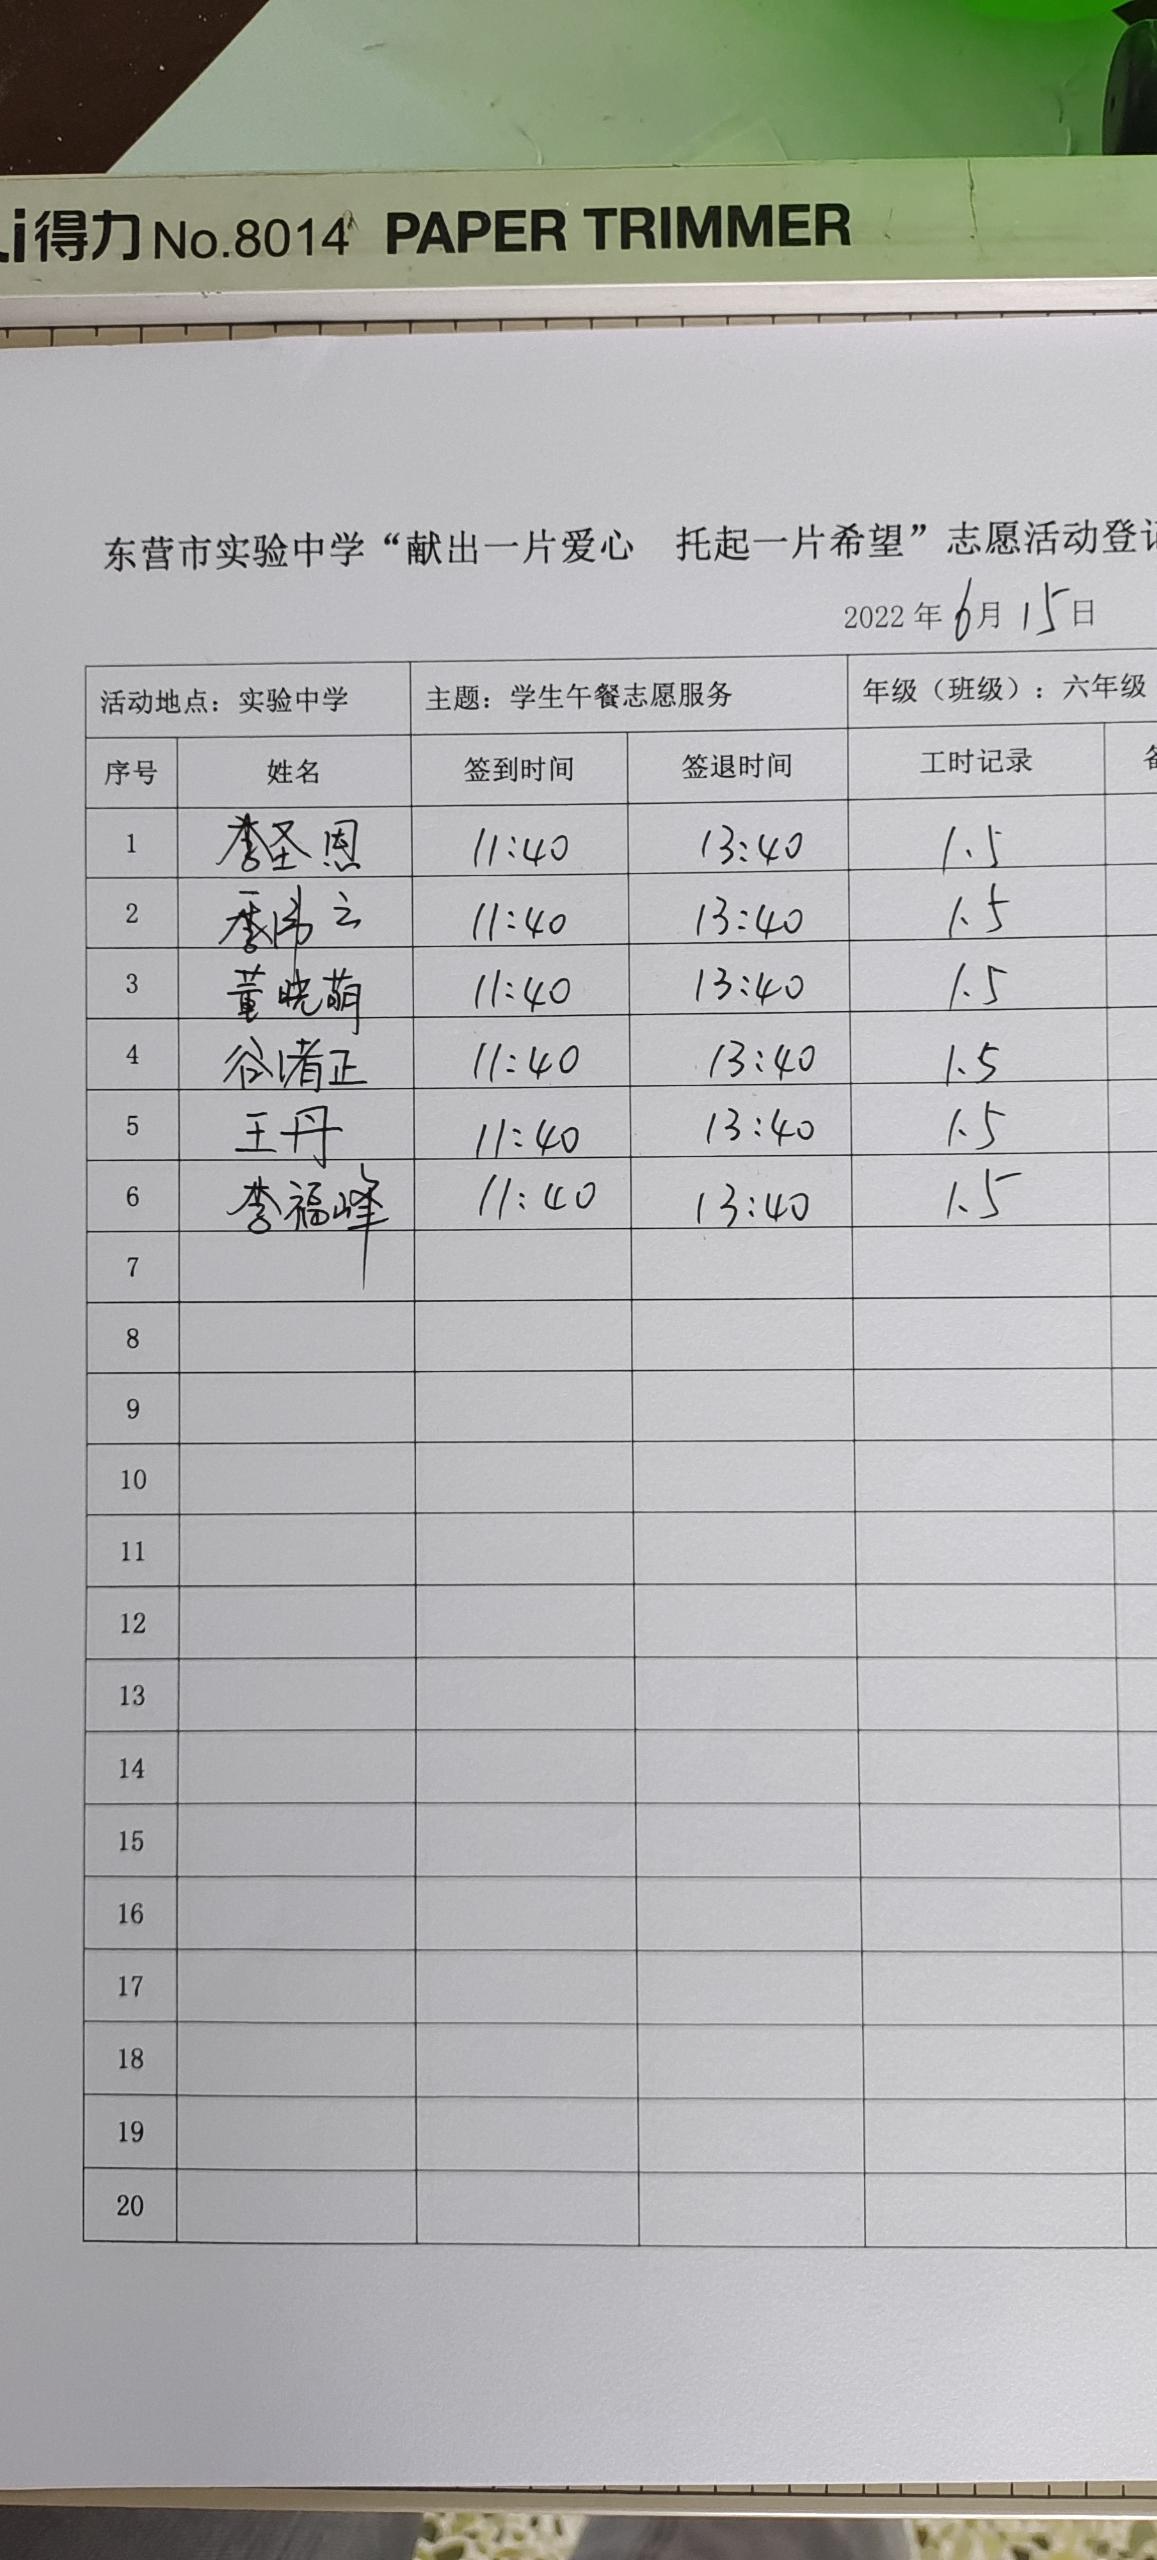 i得力 No.8014 PAPER TRIMMER
东营市实验中学“献出一片爱心 托起一片希望”志愿活动登记
2022年6月15日
活动地点：实验中学 主题：学生午餐志愿服务 年级（班级）：六年级
序号 姓名 签到时间 签退时间 工时记录 备
1 李圣恩 11:40 13:40 1.5
2 11:40 13:40 1.5
3 董晓萌 11:40 13:40 1.5
4 谷渚正 11:40 13:40 1.5
5 王丹 11:40 13:40 1.5
6 李福峰 11:40 13:40 1.5
7
8
9
10
11
12
13
14
15
16
17
18
19
20